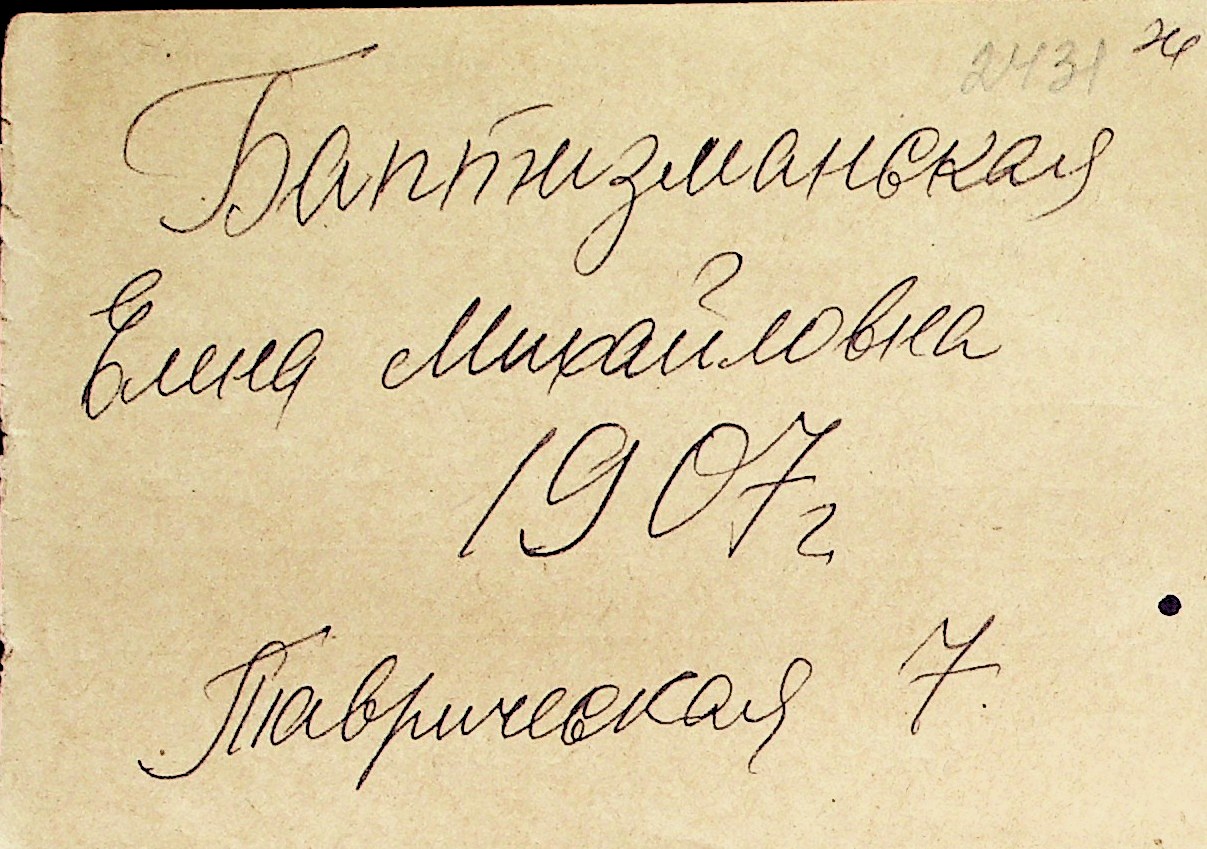 2431 ж
Баптизманская
Елена Михайловна
1907г
Таврическая 7